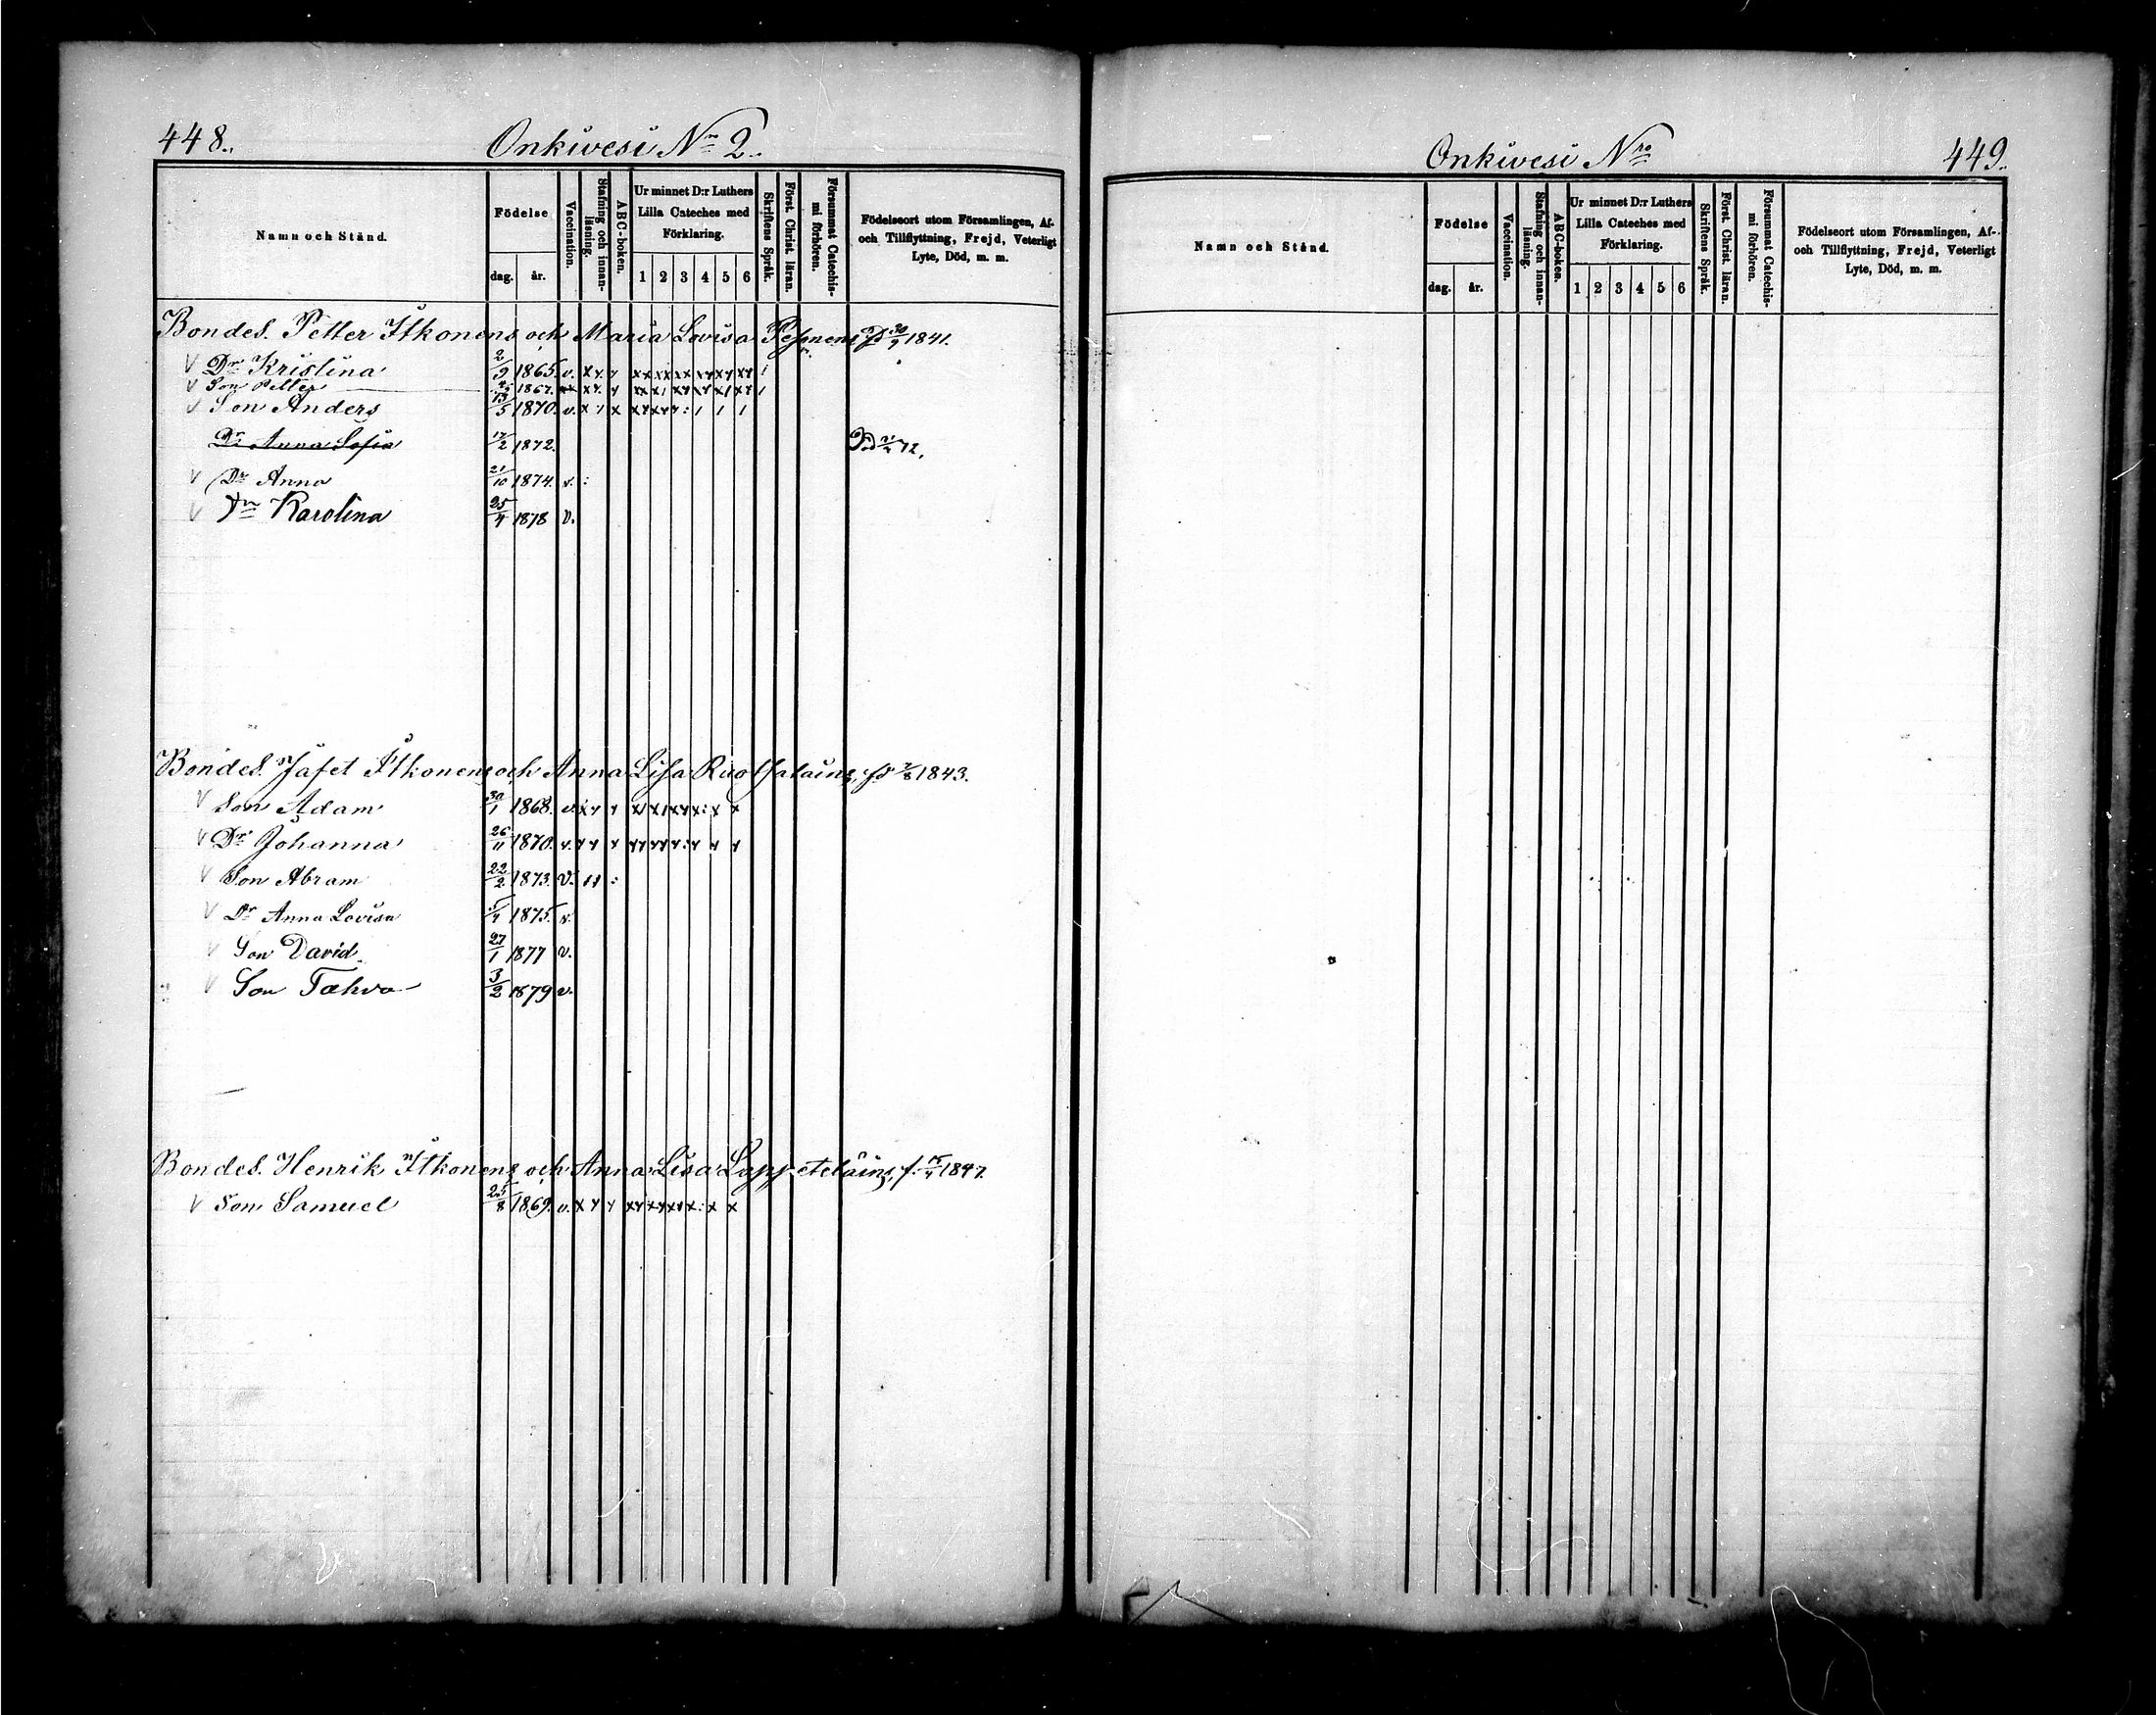 448.
Onkivesi No 2.
Namn och Stånd.
Födelse
dag. år.
Vaccination.
Stafning och innanläsning.
ABC-boken.
Ur minnet D:r Luthers Lilla Cateches med Förklaring.
1 2 3 4 5 6
Skriftens Språk.
Först. Christ. läran.
Försummat Catechismi förhören.
Födelseort utom Församlingen, Af- och Tillflyttning, Frejd, Veterligt Lyte, Död, m. m.
Bondes. Petter Itkonens och Maria Lovisa 30/9 1841.
v Dr Kristina 2/9 1865. v.
v Son Petter 1867.
v Son Anders 13/5 1870. v.
Dr Anna Sofia 17/2 1872. 72.
v Dr Anna 21/10 1874. v. :
v Dr Karolina 25/4 1878 v.
Bondes. Jafet Itkonens och Anna Lisa Ruotsalains, 7/8 1843.
v Son Adam 30/1 1868. v.
v Dr Johanna 26/11 1870. v.
v Son Abram 22/2 1873. v.
v Dr Anna Lovisa 5/4 1875. v.
v Son David 27/1 1877 v.
v Son Tahvo 3/2 1879 v.
Bondes. Henrik Itkonens och Anna Lisa Lappeteläins, f. 15/4 1847.
v Son Samuel 25/8 1869. v.
Onkivesi Nro
449.
Namn och Stånd.
Födelse
dag. år.
Vaccination.
Stafning och innanläsning.
ABC-boken.
Ur minnet D:r Luthers Lilla Cateches med Förklaring.
1 2 3 4 5 6
Skriftens Språk.
Först. Christ. läran.
Försummat Catechismi förhören.
Födelseort utom Församlingen, Af- och Tillflyttning, Frejd, Veterligt Lyte, Död, m. m.